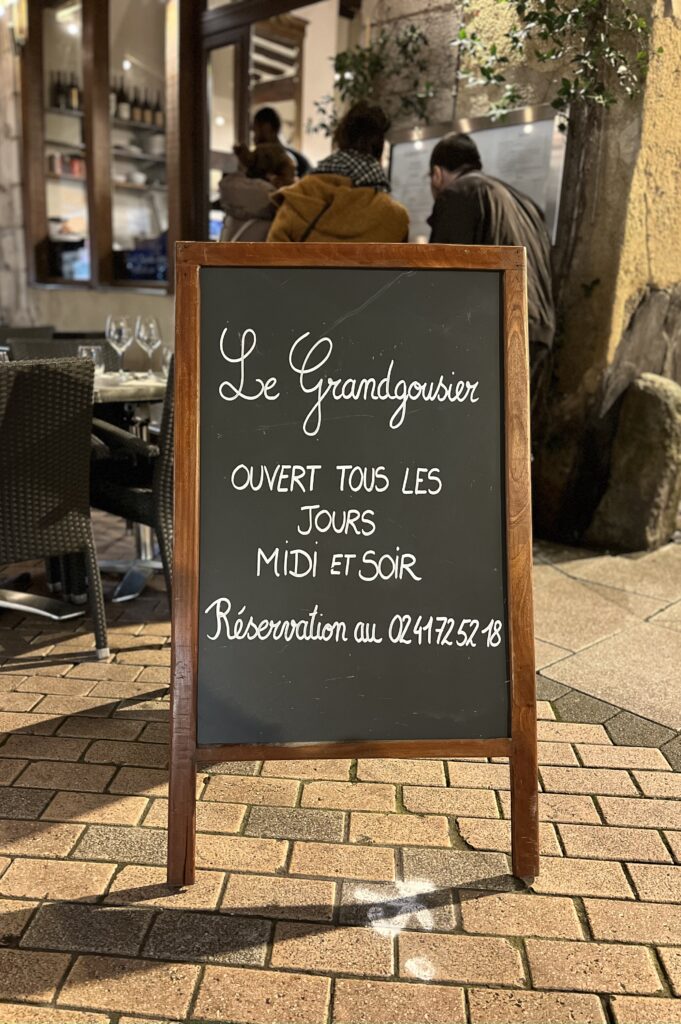 Le Grandgousier
OUVERT TOUS LES
JOURS
MiDi ET SOiR
Réservation au 0241725218